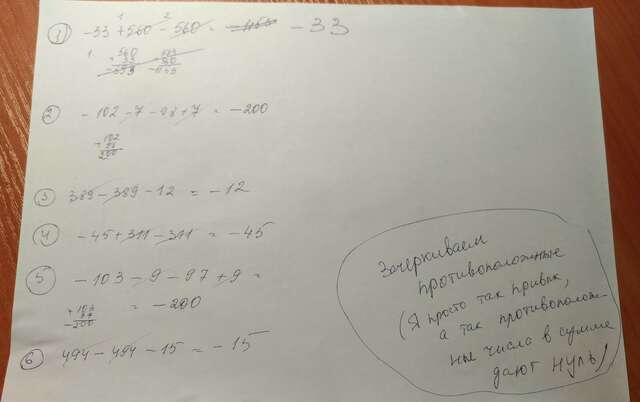 ① -33 + 560 - 560 = -33
② -102 - 7 - 98 + 7 = -200
+102
98
200
③ 389 - 389 - 12 = -12
④ -45 + 311 - 311 = -45
⑤ -103 - 9 - 97 + 9 =
= -200
+103
97
-200
⑥ 494 - 494 - 15 = -15
Зачеркиваем
противоположные
(Я просто так привык,
а так противополож-
ные числа в сумме
дают нуль)